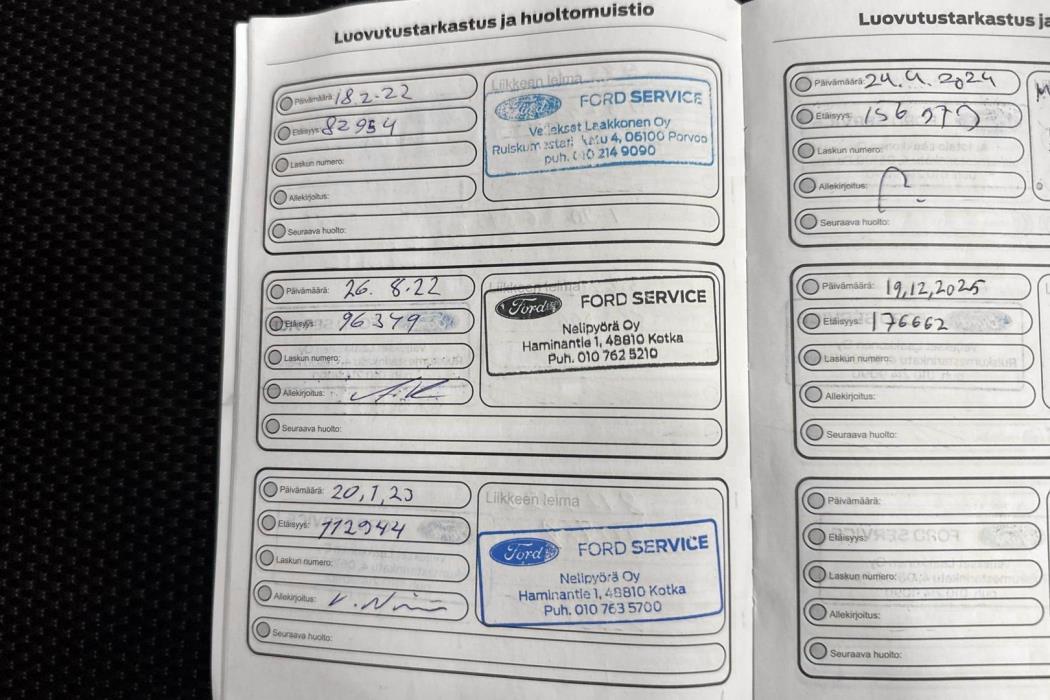 Luovutustarkastus ja huoltomuistio
Päivämäärä: 18.2.22
Etäisyys: 82954
Laskun numero:
Allekirjoitus:
Seuraava huolto:
Liikkeen leima
Ford FORD SERVICE
Laakkonen Oy
4, 06100 Porvoo
puh. 010 214 9090
Päivämäärä: 26. 8.22
Etäisyys: 96349
Laskun numero:
Allekirjoitus:
Seuraava huolto:
Liikkeen leima
Ford FORD SERVICE
Nelipyörä Oy
Haminantie 1, 48810 Kotka
Puh. 010 762 5210
Päivämäärä: 20,1,23
Etäisyys: 112944
Laskun numero:
Allekirjoitus:
Seuraava huolto:
Liikkeen leima
Ford FORD SERVICE
Nelipyörä Oy
Haminantie 1, 48810 Kotka
Puh. 010 763 5700
Luovutustarkastus ja
Päivämäärä: 2024
Etäisyys: 156
Laskun numero:
Allekirjoitus:
Seuraava huolto:
Päivämäärä: 19,12,2025
Etäisyys: 176662
Laskun numero:
Allekirjoitus:
Seuraava huolto:
Päivämäärä:
Etäisyys:
Laskun numero:
Allekirjoitus:
Seuraava huolto: